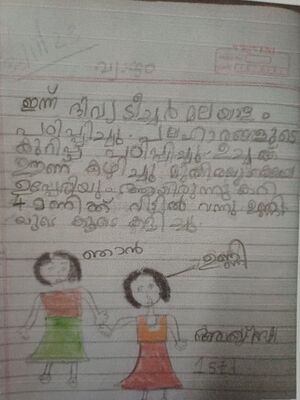 വ്യാഴം
ഇന്ന് ദിവ്യ ടീച്ചർ മലയാളം
പഠിപ്പിച്ചു. പലഹാരങ്ങളുടെ
കുറിച്ച് പഠിപ്പിച്ചു. ഉച്ചക്ക്
ഊണ് കഴിച്ചു
ഉപ്പേരിയും ആയിരുന്നു കറി
4 മണിക്ക് വീട്ടിൽ വന്നു ഉണ്ണി
യുടെ കൂടെ കളിച്ചു.
ഞാൻ
ഉണ്ണി